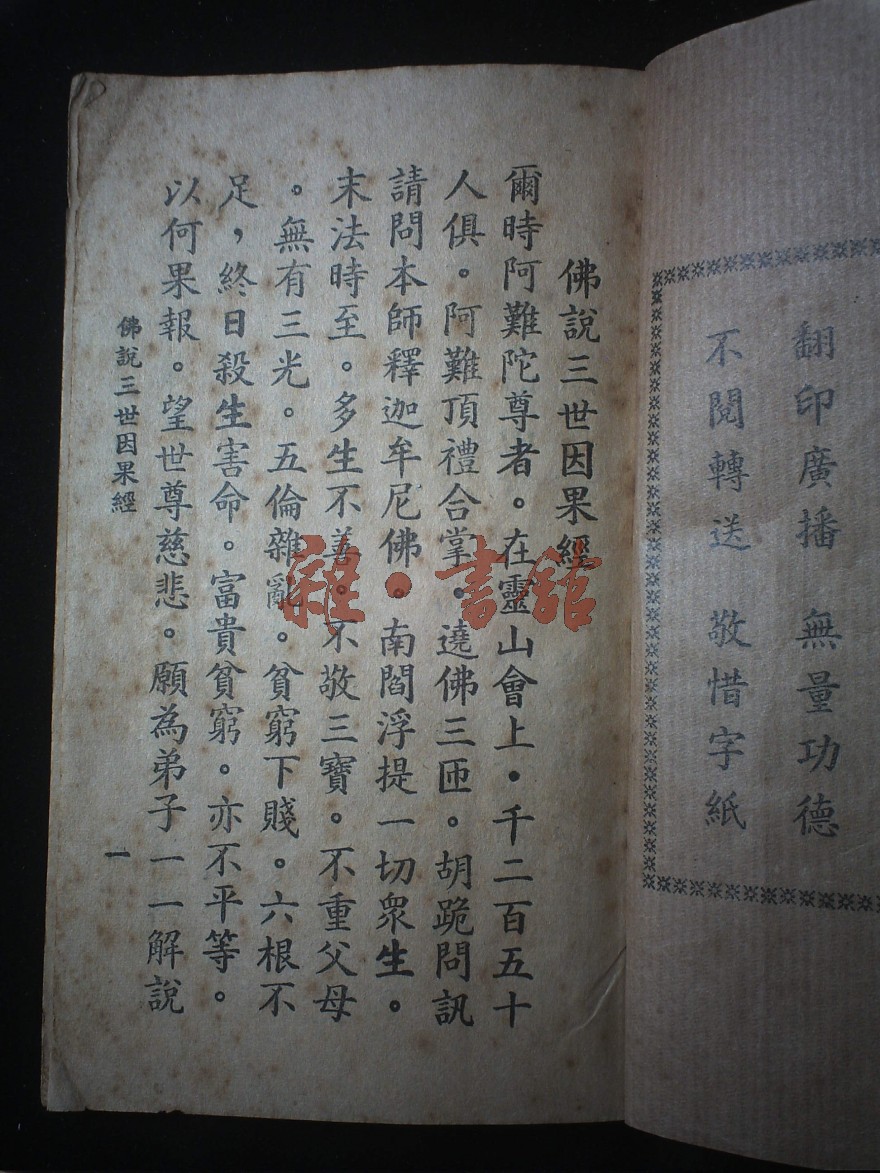 翻印廣播 無量功德
不閱轉送 敬惜字紙
佛說三世因果經
爾時阿難陀尊者。在靈山會上。千二百五十
人俱。阿難頂禮合掌。遶佛三匝。胡跪問訊
請問本師釋迦牟尼佛。南閻浮提一切衆生。
末法時至。多生不善。不敬三寶。不重父母
。無有三光。五倫雜亂。貧窮下賤。六根不
足，終日殺生害命。富貴貧窮。亦不平等。
以何果報。望世尊慈悲。願為弟子一一解說
佛說三世因果經
一
雜·書館